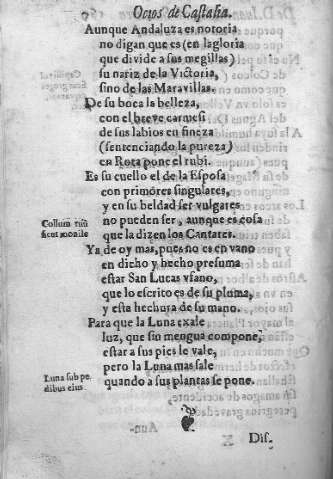 Ocios de Castalia.
Aunque Andaluza es notoria
no digan que es (en la gloria
que divide a sus megillas)
su nariz de la Victoria,
sino de las Maravillas.
De su boca la belleza,
con el breve carmesi
de sus labios en fineza
(sentenciando la pureza)
en Rota pone el rubi.
Es su cuello el de la Esposa
con primores singulares,
y en su beldad ser vulgares
no pueden ser, aunque es cosa
que la dizen los Cantares.
Collum tuũ
sicut monile
Ya de oy mas, pues no es en vano
en dicho y hecho presuma
estar San Lucas vfano,
que lo escrito es de su pluma,
y esta hechura de su mano.
Para que la Luna exale
luz, que sin mengua compone,
estar a sus pies le vale,
pero la Luna mas sale
quando a sus plantas se pone.
Luna sub pe
dibus eius
Dis,